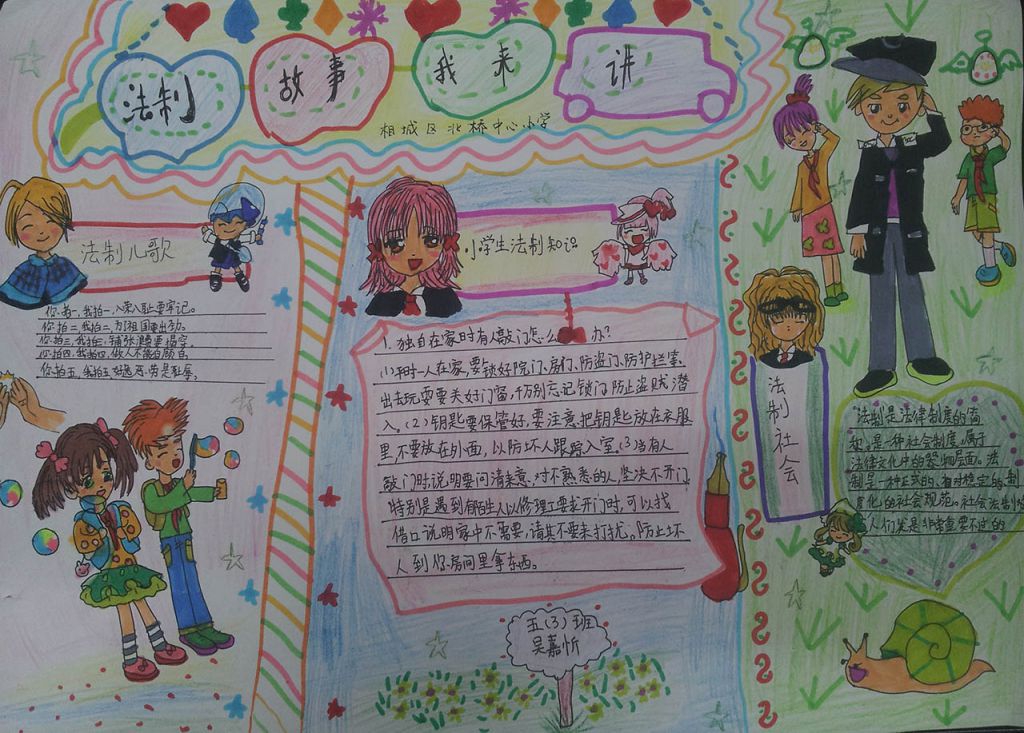 法制 故事 我来 讲
相城区北桥中心小学
法制儿歌
你拍一,我拍一,八荣八耻要牢记。
你拍二,我拍二,为祖国要出力。
你拍三,我拍三,铺张浪费要
你拍四,我拍四,做人不能
你拍五,我拍五,
小学生法制知识
1.独自在家时有人敲门怎么办?
(1)平时一人在家,要锁好院门、房门、防盗门、防护栏等。
出去玩需要关好门窗,千万别忘记锁门,防止盗贼潜
入。(2)钥匙要保管好,要注意把钥匙放在衣服
里,不要放在外面,以防坏人跟踪入室。(3)当有人
敲门时,说明要问清来意,对不熟悉的人,坚决不开门,
特别是遇到陌生人以修理工要求开门时,可以找
借口说明家中不需要,请其不要来打扰。防止坏
人到你房间里拿东西。
五(3)班
吴嘉忻
法制社会
法制是法律制度的简
称,是一种社会制度,属于
法律文化中的器物层面。法
制是一种正式的、相对稳定的、制
度化的社会规范。社会法制
人们来是非常重要不过的